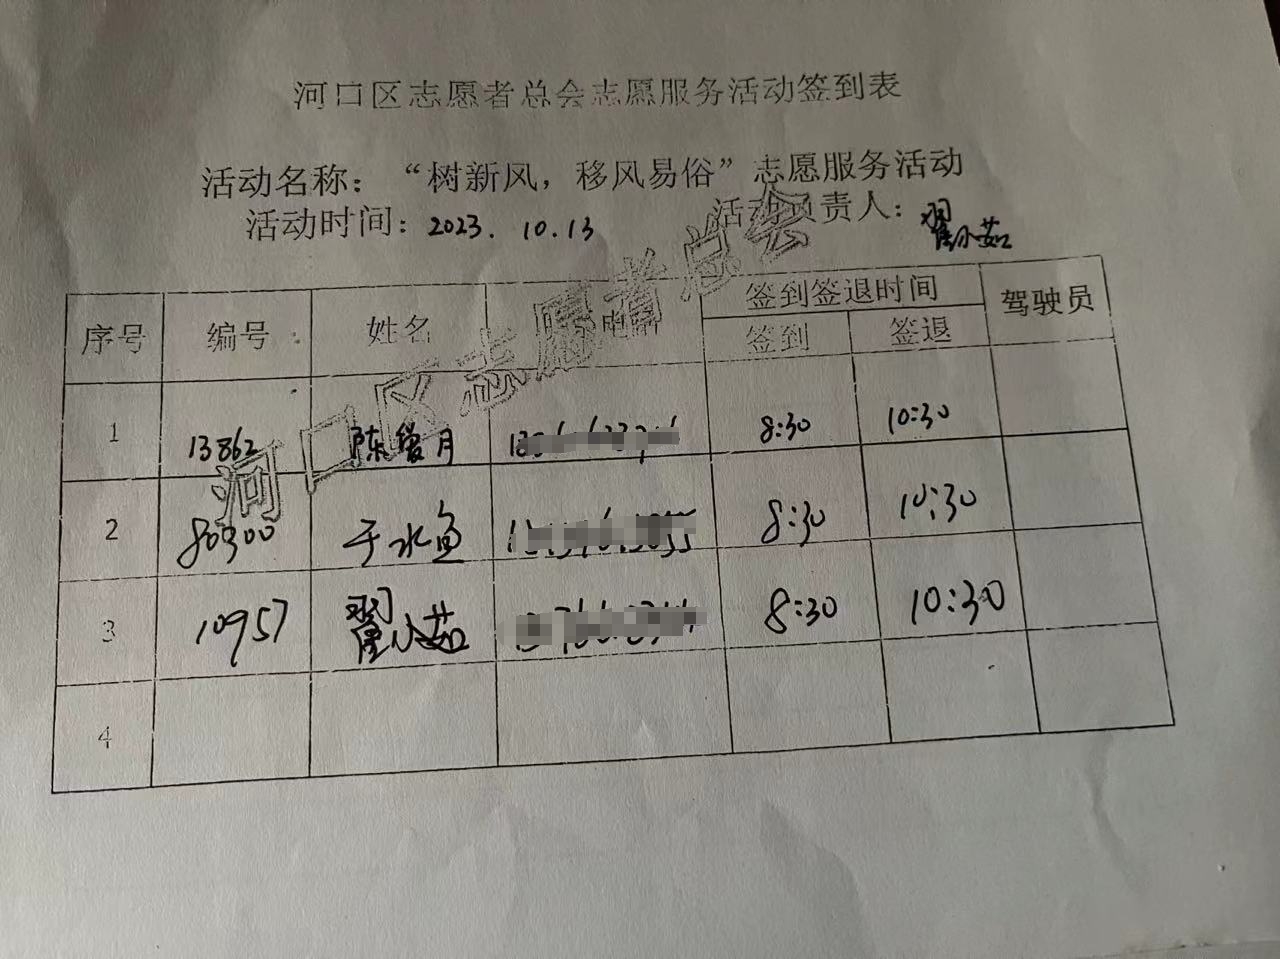 河口区志愿者总会志愿服务活动签到表
活动名称：“树新风，移风易俗”志愿服务活动
活动时间：2023.10.13 活动负责人：翟小茹
序号 编号 姓名 电话 签到签退时间 驾驶员
签到 签退
1 13862 陈爱月 8:30 10:30
2 80300 于水鱼 8:30 10:30
3 10957 翟小茹 8:30 10:30
4
河口区志愿者总会